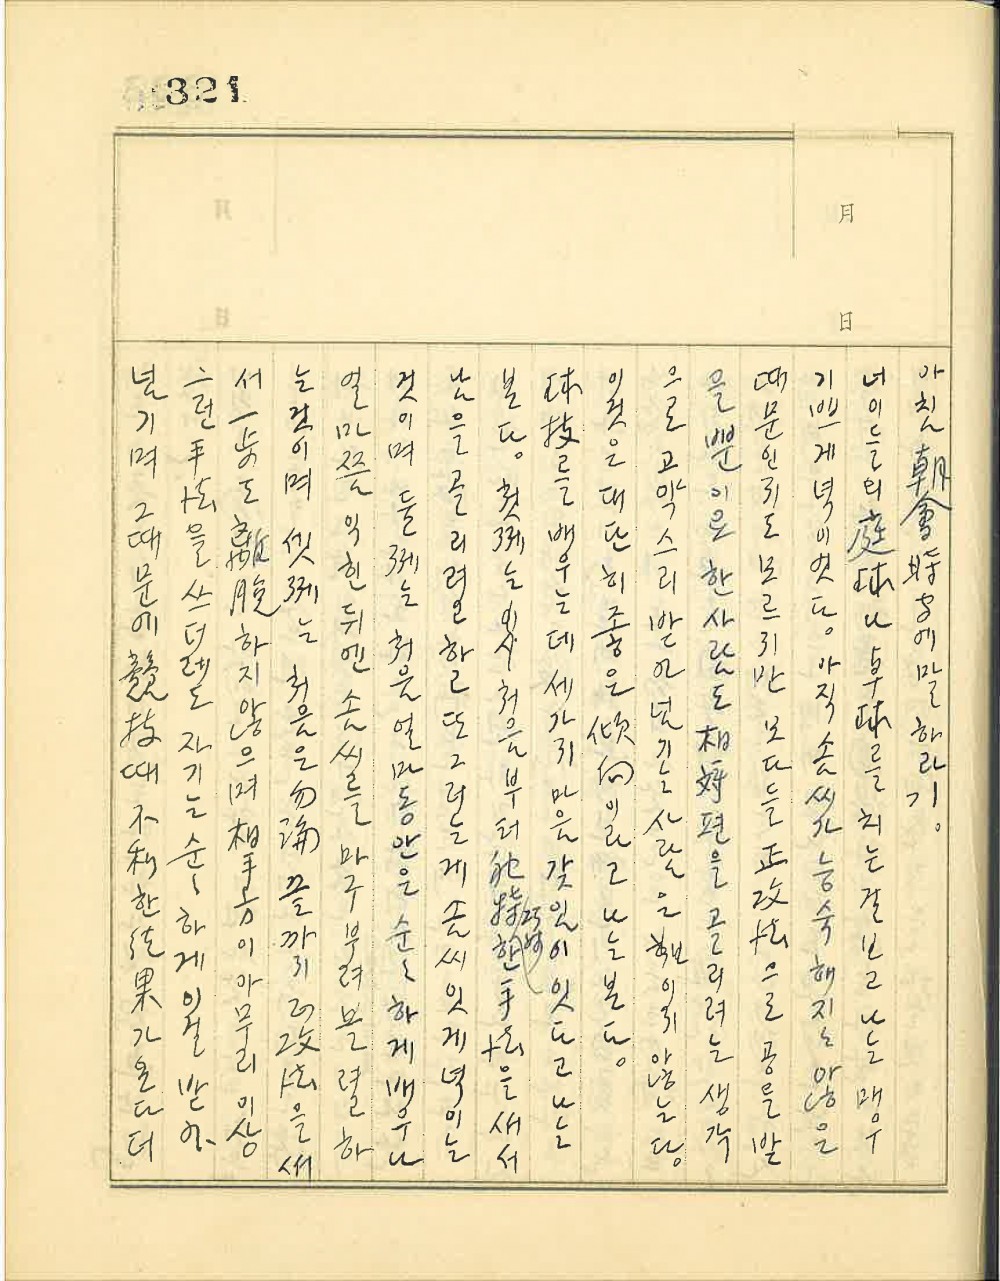 321
月
日
아침 朝會時字에 말하라기。
너이들의 庭球나 卓球를 치는 걸 보고 나는 매우
기쁘게 녁이엿다。 아직 솜씨가 능숙해지는 않은
때문인지도 모르지만 모다들 正攻法으로 공을 받
을 뿐이로 한사람도 相對編을 골리려는 생각
으로 고약스리 받아 넘기는 사람은 핸이지 않는다。
이것은 대단히 좋은 傾向이라고 나는 본다。
球技를 배우는데 세가지 마음갖임이 잇다고 나는
본다。 첫째는 처음부터 奇特한 手法을 새서
남을 골리려고 하고 또 그러는 게 솜씨잇게 녁이는
것이며 둘째는 처음 얼마동안은 순순하게 배우나
얼마쯤 익힌 뒤엔 솜씨를 마구 부려볼렬 하
는 것이며 셋째는 처음은 勿論 끝까지 正攻法을 써
서 一步도 離脫하지 않으며 相手方이 아무리 이상
스런 手法을 쓰더래도 자기는 순순하게 이걸 받아
넘기며 그때문에 競技때 不利한 結果가 온다더